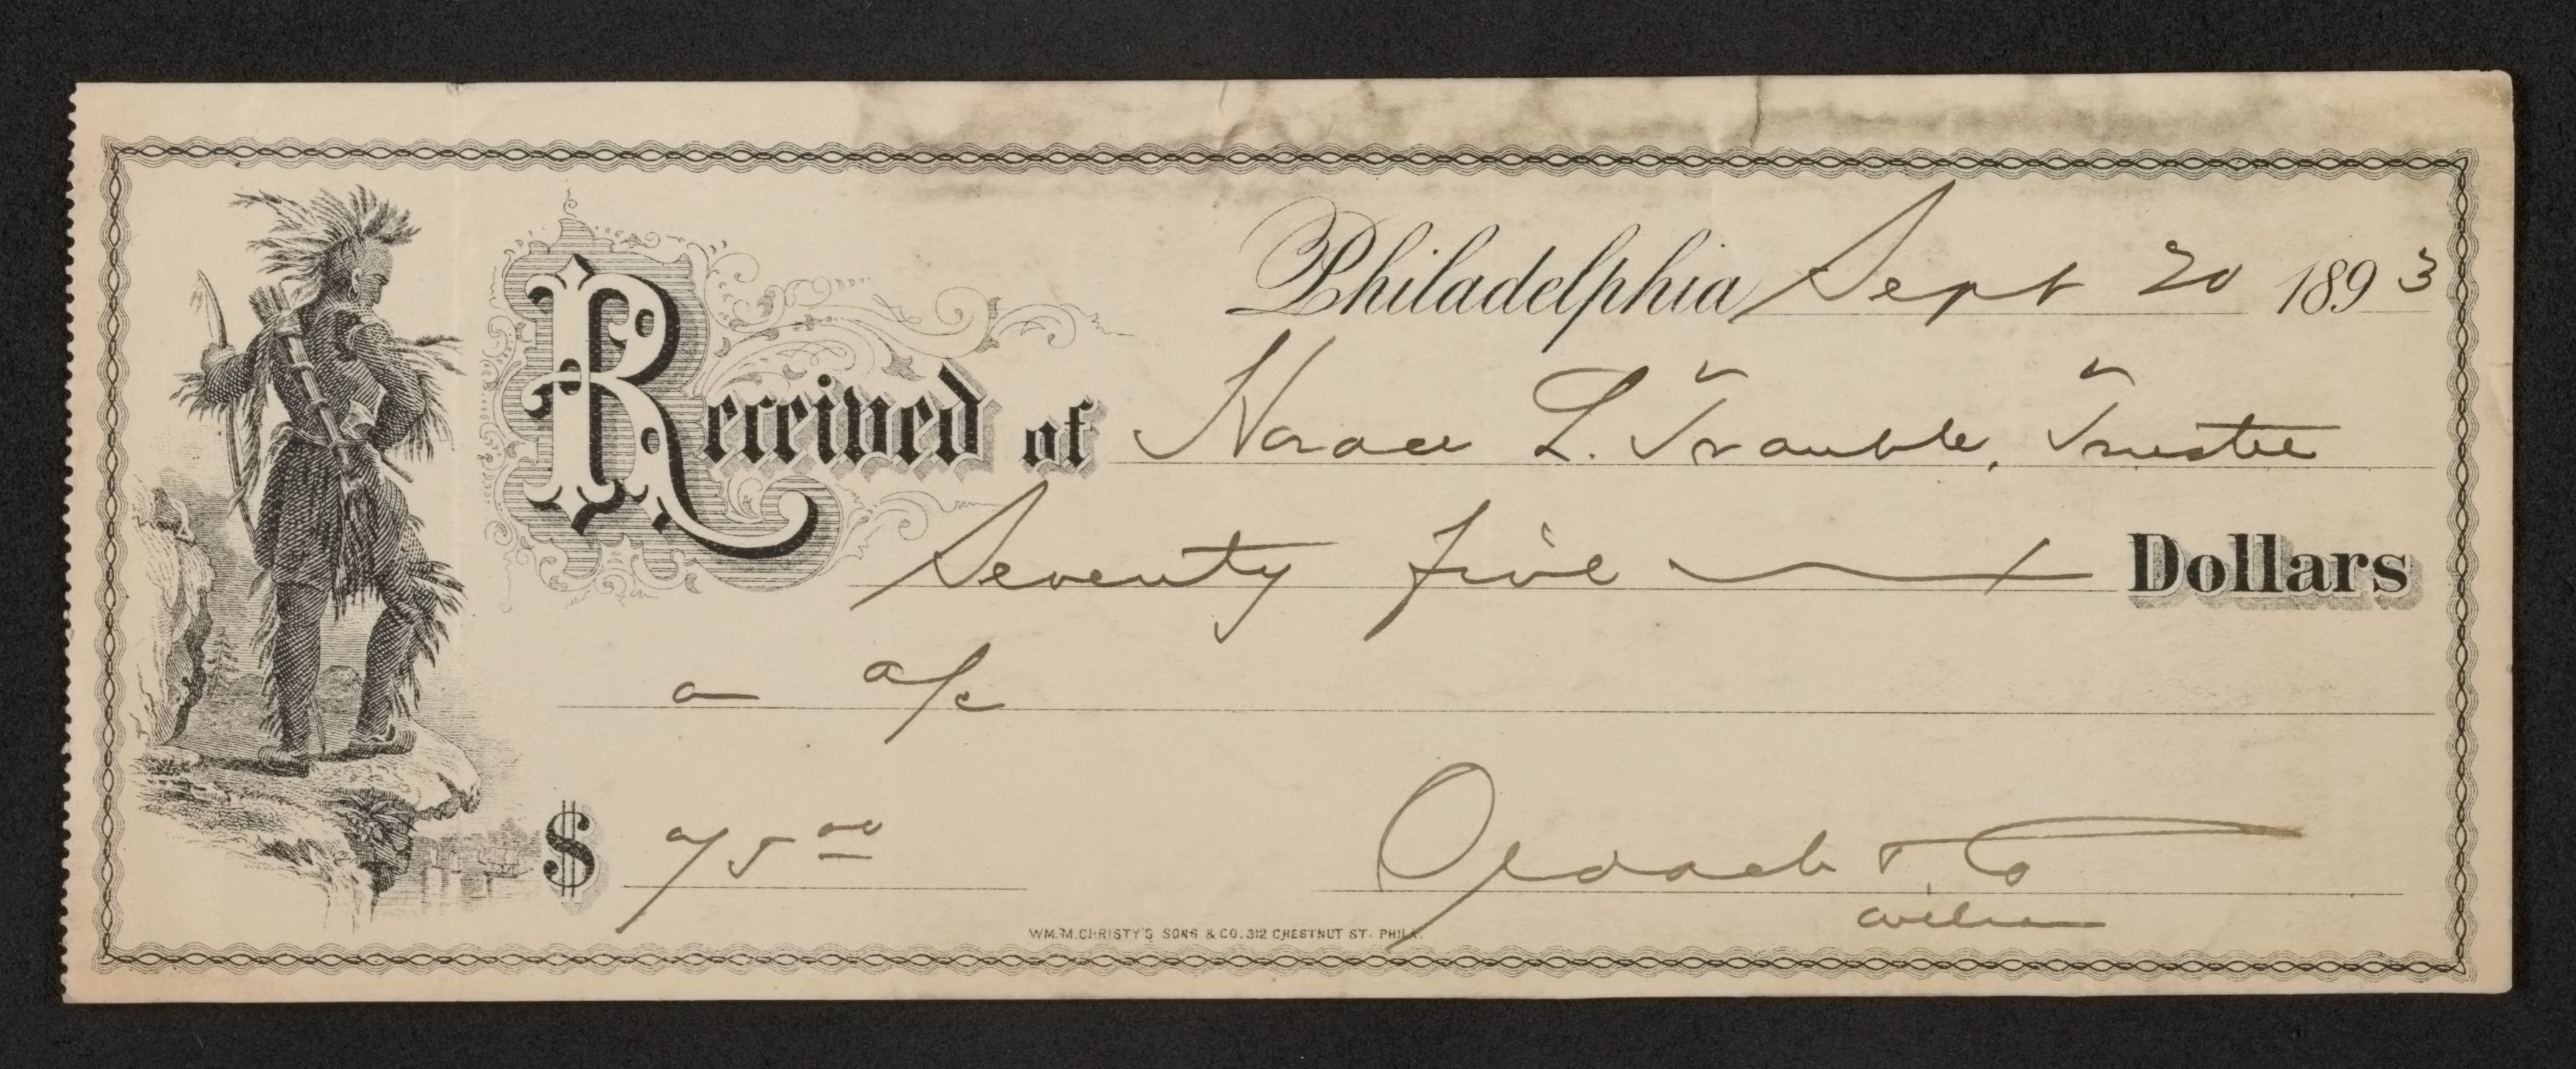 Philadelphia Sept 20 1893
Received of Horace L. Trauble, Trustee
Seventy five Dollars
on a/c
$ 75 00
Oldach & Co
WM. M. CHRISTY'S SONS & CO. 312 CHESTNUT ST. PHILA.